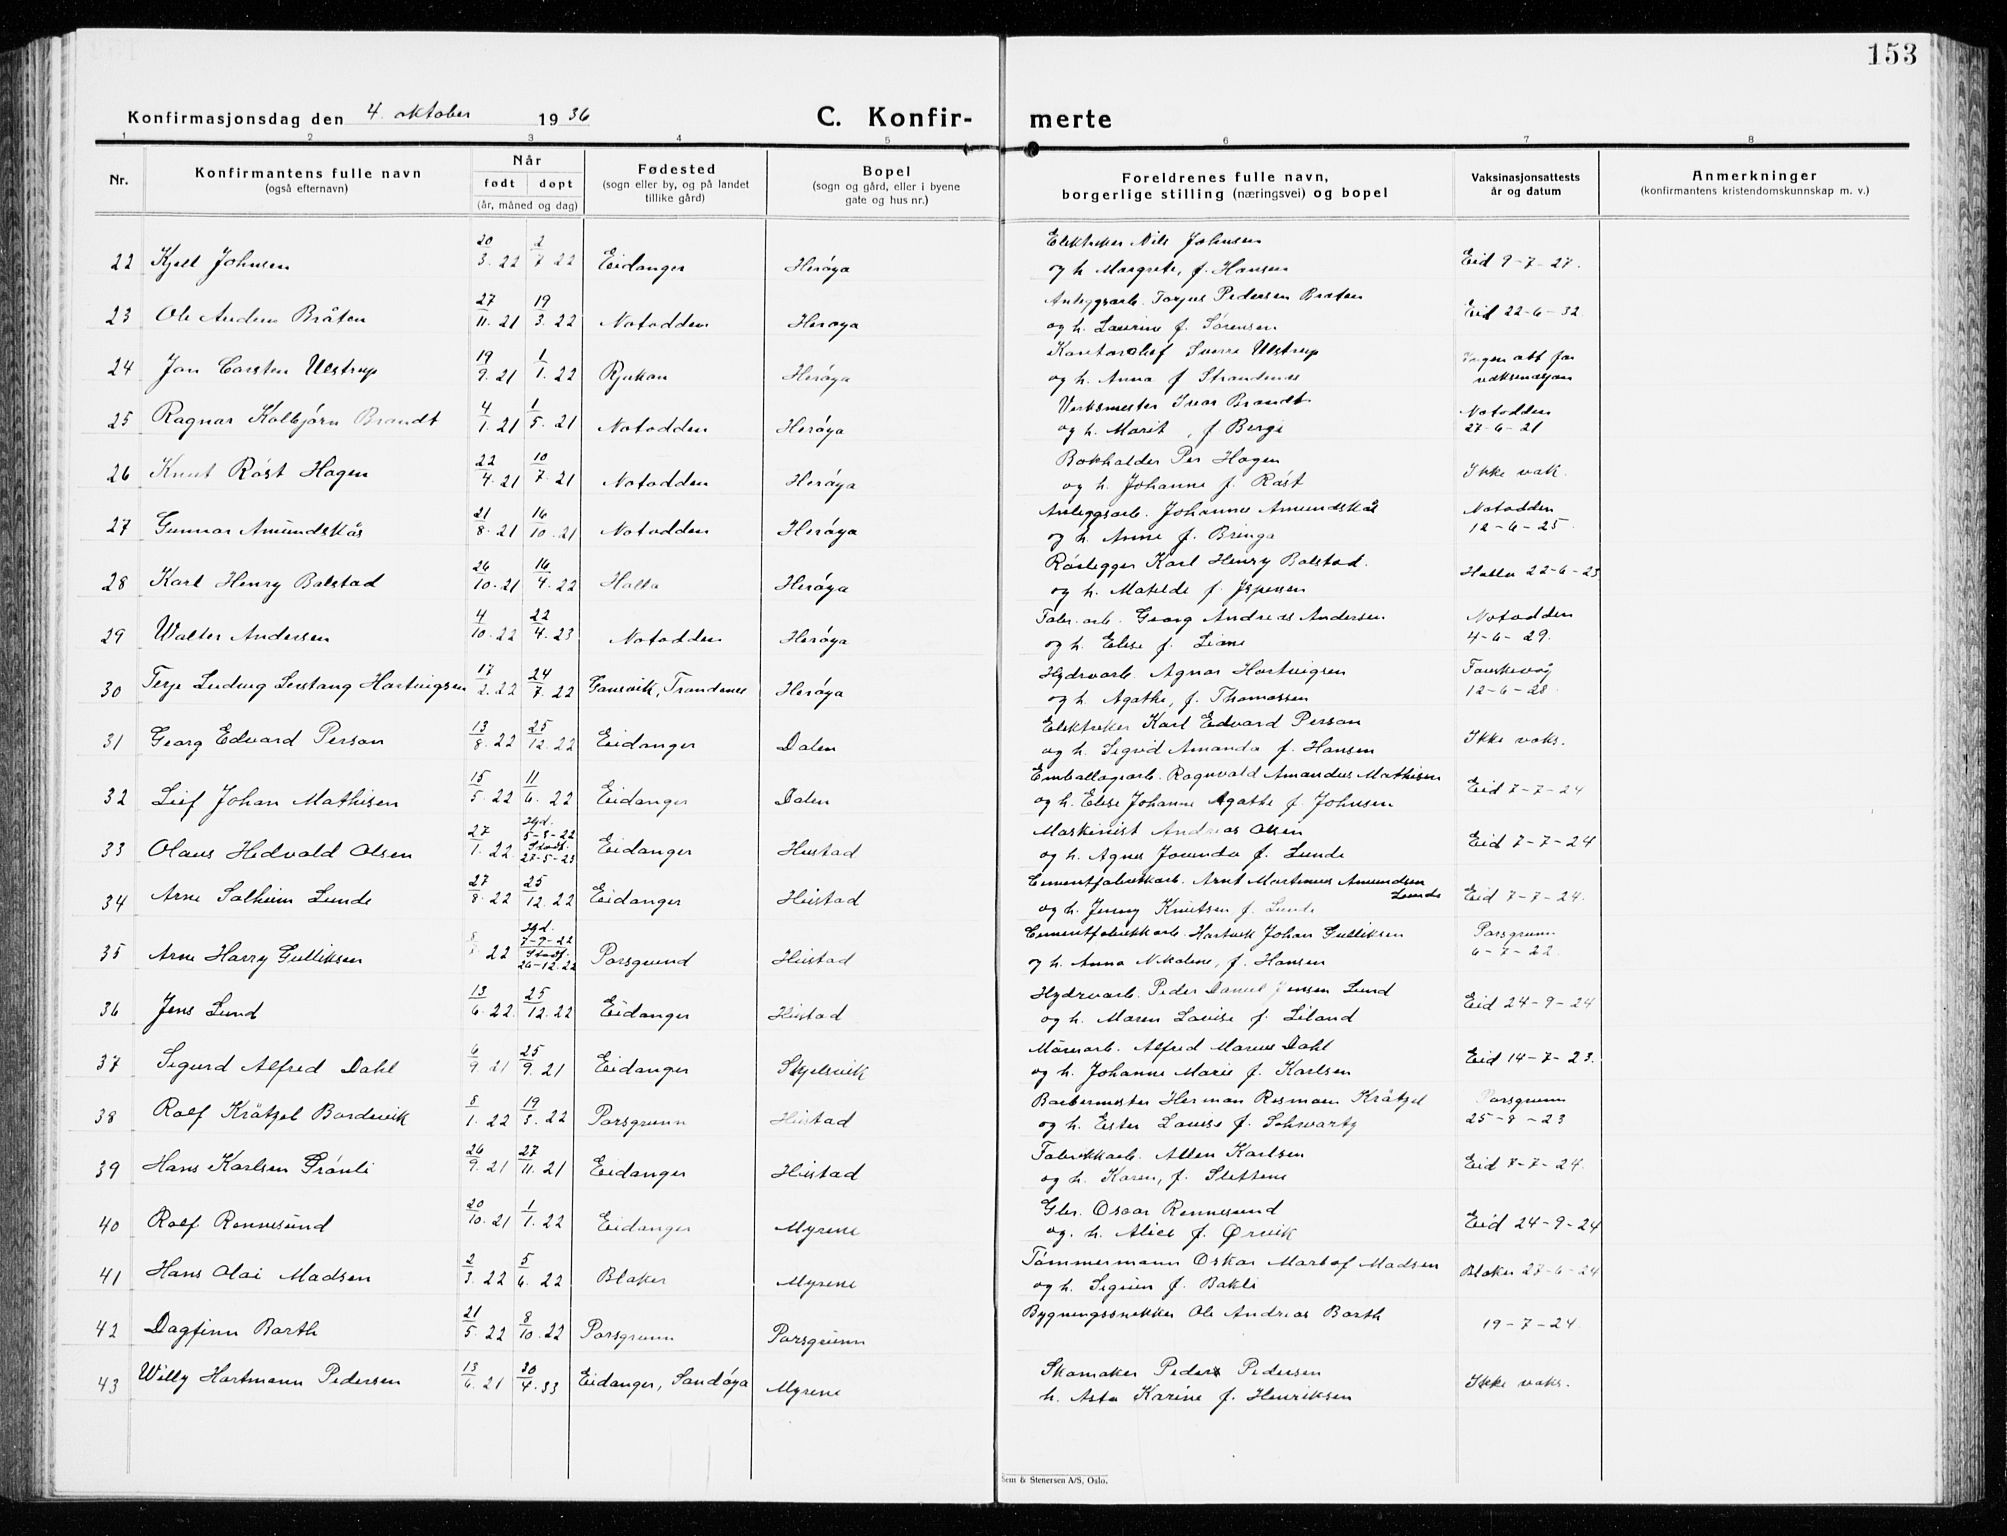 153
Konfirmasjonsdag den 4. oktober 1936 C. Konfir- merte
1 2 3 4 5 6 7 8
Nr. Konfirmantens fulle navn (også efternavn) Når født døpt (år, måned og dag) Fødested (sogn eller by, og på landet tillike gård) Bopel (sogn og gård, eller i byene gate og hus nr.) Foreldrenes fulle navn, borgerlige stilling (næringsvei) og bopel Vaksinasjonsattests år og datum Anmerkninger (konfirmantens kristendomskunnskap m. v.)
22 Kjell Johnsen 20/3. 22 2/7 22 Eidanger Herøya Elektriker Nils Johnsen Eid 9-7-27.
og h. Margrete, f. Hansen
23 Ole Anders Bråten 27/11. 21 19/3. 22 Notodden Herøya Anleggsarb. Torjus Pedersen Braten Eid 22-6-32.
og h. Laurine f. Sørensen
24 Jan Carsten Ulstrup 19/9. 21 1/1. 22 Rjukan Herøya Kontorchef Sverre Ulstrup Ingen att for
og h. Anna f. vaksinasjon
25 Ragnar Kolbjørn Brandt 4/1. 21 1/5. 21 Notodden Herøya Verksmester Ivar Brandt Notodden
og h. Marit, f Berge 27-6-21
26 Knut Røst Hagen 22/4. 21 10/7. 21 Notodden Herøya Bokholder Per Hagen Ikke vak.
og h. Johanne f. Røst
27 Gunnar Amundskås 21/8. 21 16/10. 21 Notodden Herøya Anleggsarb. Johannes Amundskås Notodden
og h. Anne f. Bringa 12-6-25.
28 Karl Henry Bolstad 26/10. 21 16/4. 22 Holla Herøya Rørlegger Karl Henry Bolstad. Holla 22-6-23
og h. Matilde f. Jspersen
29 Walter Andersen 4/10. 22 22/4. 23 Notodden Herøya Fabr. arb. Georg Andreas Andersen Notodden
og h. Elise f. Liane 4-6-29.
30 Terje Ludvig Hartvigsen 17/2. 22 24/7. 22 Gausvik, Trondenes Herøya Hydroarb. Agnar Hartvigsen
og h. Agathe, f. Thomassen 12-6-28
31 Georg Edvard Person 13/8. 22 25/12. 22 Eidanger Dalen Elektriker Karl Edvard Person Ikke vaks.
og h. Sigrid Amanda f. Hansen
32 Leif Johan Mathisen 15/5. 22 11/6. 22 Eidanger Dalen Emballagearb. Ragnvald Amandus Mathisen Eid 7-7-24
og h. Elise Johanne Agathe f. Johnsen
33 Olaus Hedvald Olsen 27/1. 22 hjd. 5-3-22 Stadf. 27-5-23 Eidanger Heistad Maskinist Andreas Olsen Eid 7-7-24
og h. Agnes Jovinda f. Lunde
34 Arne Solheim Lunde 27/8. 22 25/12. 22 Eidanger Heistad Cementfabrikkarb. Arnt Martinius Amundsen Lunde Eid 7-7-24.
og h. Jenny Knutsen f. Lunde
35 Arne Harry Gulliksen 22 hjd. 7-9-22 Stadf. 26-12.22 Porsgrund Heistad Cementfabrikkarb. Hartvik Johan Gulliksen Porsgrunn
og h. Anna Nikoline, f. Hansen 6-7-22.
36 Jens Lund 13/6. 22. 25/12. 22 Eidanger Heistad Hydroarb. Peder Daniel Jensen Lund Eid 24-9-24
og h. Maren Lovise f. Leland
37 Sigurd Alfred Dahl 6/9 21 25/9. 21 Eidanger Skjelsvik Murarb. Alfred Marius Dahl Eid 14-7-23.
og h. Johanne Marie f. Karlsen
38 Rolf Krätzel Bordevik 8/1. 22 19/3. 22 Porsgrunn Heistad Barbermester Herman Krätzel Porsgrunn
og h. Ester Lovise f. Schwartz 25-9-23
39 Hans Karlsen Grønli 26/9. 21 27/11. 21 Eidanger Heistad Fabrikkarb. Alten Karlsen Eid 7-7-24.
og h. Karen, f. Slettene
40 Rolf Rennesund 20/10. 21 1/1. 22 Eidanger Myrene Oscar Rennesund Eid 24-9-24
og. h. Alice f. Ørvik
41 Hans Olai Madsen 2/3. 22 5/6. 22 Blaker Myrene Tømmermann Oskar Madsen Blaker 27-6-24
og h. Sigrun f. Bakli
42 Dagfinn Barth 21/5. 22 8/10. 22 Porsgrunn Porsgrunn Bygningssnekker Ole Andreas Barth 19-7-24.
43 Willy Hartmann Pedersen 13/6. 21 30/4. 33 Eidanger, Sandøya Myrene Skomaker Peder Pedersen Ikke vaks.
h. Asta Karine f. Henriksen
Sem & Stenersen A/S, Oslo.